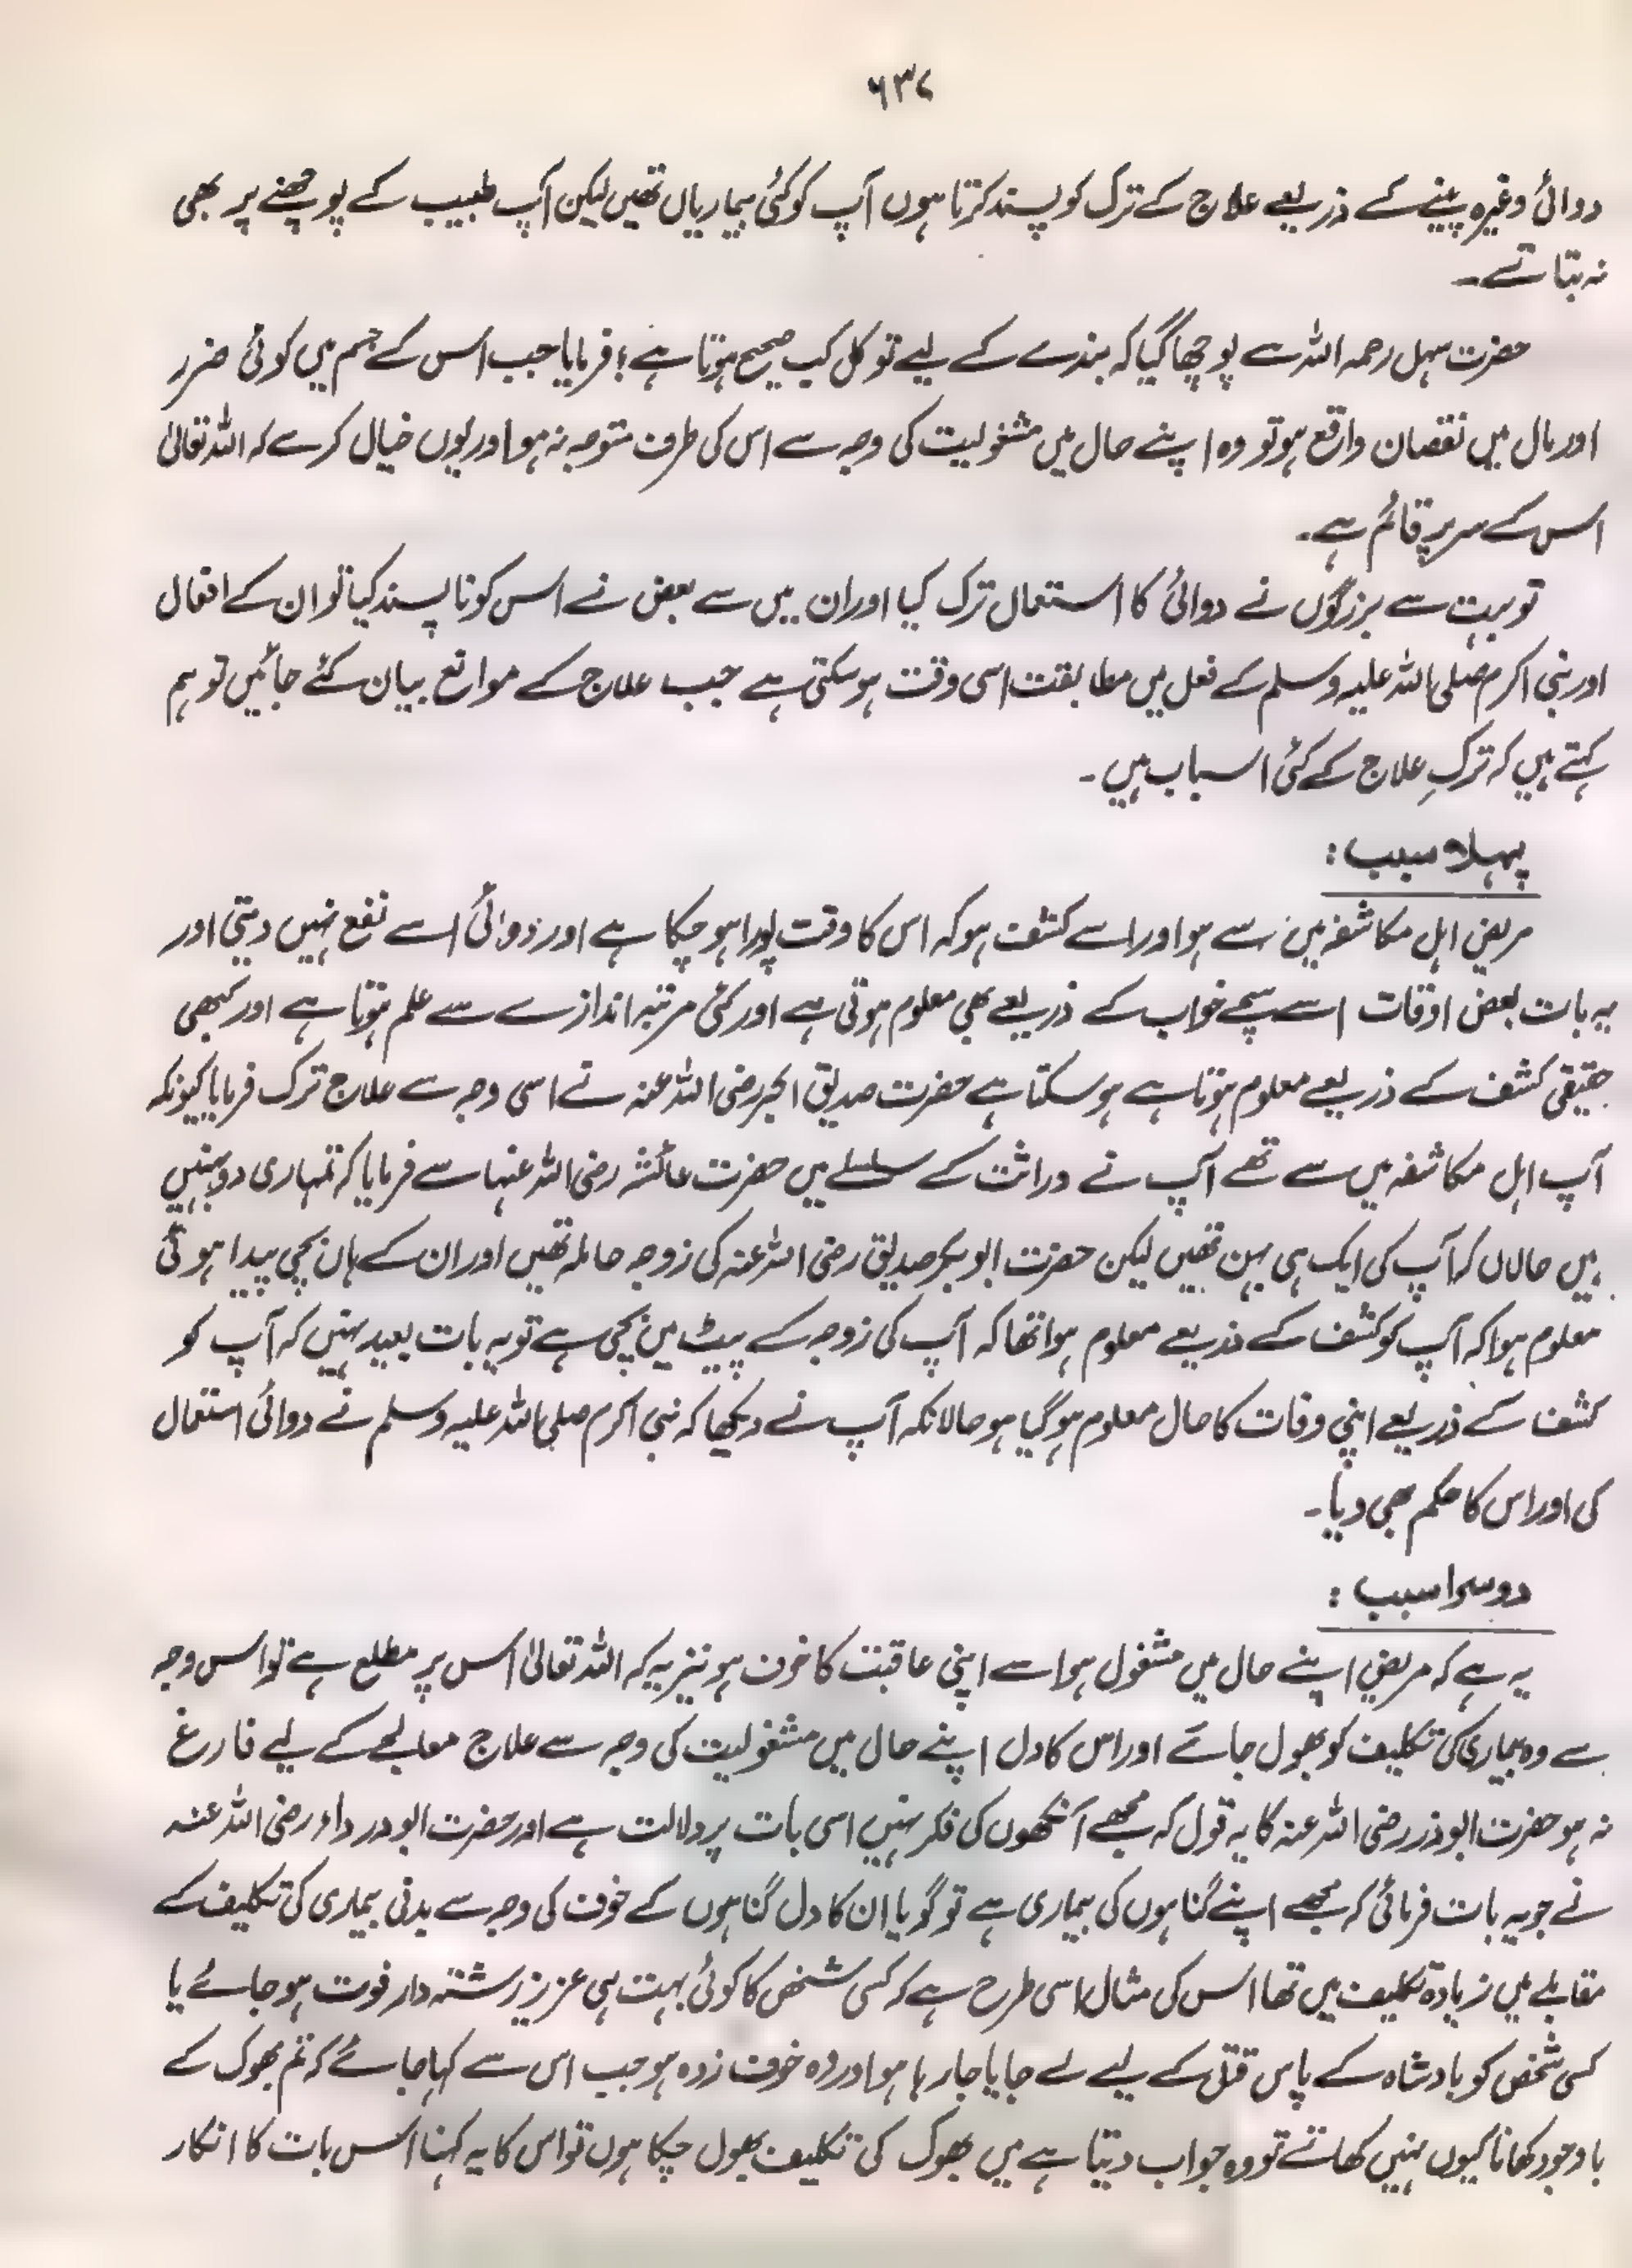 ۶۳۷
دوائی وغیرہ پینے کے ذریعے علاج کے ترک کو پسند کرتا ہوں آپ کو کئی بیماریاں تھیں لیکن آپ طبیب کے پوچھنے پر بھی
نہ بتاتے۔
حضرت سہل رحمہ اللہ سے پوچھا گیا کہ بندے کے لیے توکل کب صحیح ہوتا ہے؛ فرمایا جب اس کے جسم میں کوئی ضرر
اور مال میں نقصان واقع ہو تو وہ اپنے حال میں مشغولیت کی وجہ سے اس کی طرف متوجہ نہ ہو اور یوں خیال کرے کہ اللہ تعالیٰ
اس کے سر پر قائم ہے۔
تو بہت سے بزرگوں نے دوائی کا استعمال ترک کیا اور ان میں سے بعض نے اس کو ناپسند کیا تو ان کے افعال
اور نبی اکرم صلی اللہ علیہ وسلم کے فعل میں مطابقت اسی وقت ہو سکتی ہے جب علاج کے موانع بیان کئے جائیں تو ہم
کہتے ہیں کہ ترکِ علاج کے کئی اسباب ہیں۔
پہلا سبب:
مریض اہل مکاشفہ میں سے ہو اور اسے کشف ہو کہ اس کا وقت پورا ہو چکا ہے اور دوائی اسے نفع نہیں دیتی اور
یہ بات بعض اوقات اسے سچے خواب کے ذریعے بھی معلوم ہوتی ہے اور کئی مرتبہ اندازے سے علم ہوتا ہے اور کبھی
حقیقی کشف کے ذریعے معلوم ہوتا ہے ہو سکتا ہے حضرت صدیق اکبر رضی اللہ عنہ نے اسی وجہ سے علاج ترک فرمایا کیونکہ
آپ اہل مکاشفہ میں سے تھے آپ نے وراثت کے سلسلے میں حضرت عائشہ رضی اللہ عنہا سے فرمایا کہ تمہاری دو بہنیں
ہیں حالاں کہ آپ کی ایک ہی بہن تھیں لیکن حضرت ابوبکر صدیق رضی اللہ عنہ کی زوجہ حاملہ تھیں اور ان کے ہاں بچی پیدا ہوئی
معلوم ہوا کہ آپ کو کشف کے ذریعے معلوم ہوا تھا کہ آپ کی زوجہ کے پیٹ میں بچی ہے تو یہ بات بعید نہیں کہ آپ کو
کشف کے ذریعے اپنی وفات کا حال معلوم ہو گیا ہو حالانکہ آپ نے دیکھا کہ نبی اکرم صلی اللہ علیہ وسلم نے دوائی استعمال
کی اور اس کا حکم بھی دیا۔
دوسرا سبب:
یہ ہے کہ مریض اپنے حال میں مشغول ہو اسے اپنی عاقبت کا خوف ہو نیز یہ کہ اللہ تعالیٰ اس پر مطلع ہے تو اس وجہ
سے وہ بیماری کی تکلیف کو بھول جائے اور اس کا دل اپنے حال میں مشغولیت کی وجہ سے علاج معالجے کے لیے فارغ
نہ ہو حضرت ابوذر رضی اللہ عنہ کا یہ قول کہ مجھے آنکھوں کی فکر نہیں اسی بات پر دلالت ہے اور حضرت ابو درداء رضی اللہ عنہ
نے جو یہ بات فرمائی کہ مجھے اپنے گناہوں کی بیماری ہے تو گویا ان کا دل گناہوں کے خوف کی وجہ سے بدنی بیماری کی تکلیف کے
مقابلے میں زیادہ تکلیف میں تھا اس کی مثال اسی طرح ہے کہ کسی شخص کا کوئی بہت ہی عزیز رشتہ دار فوت ہو جائے یا
کسی شخص کو بادشاہ کے پاس قتل کے لیے لے جایا جا رہا ہو اور وہ خوف زدہ ہو جب اس سے کہا جائے کہ تم بھوک کے
باوجود کھانا کیوں نہیں کھاتے تو وہ جواب دیتا ہے میں بھوک کی تکلیف بھول چکا ہوں تو اس کا یہ کہنا اس بات کا انکار